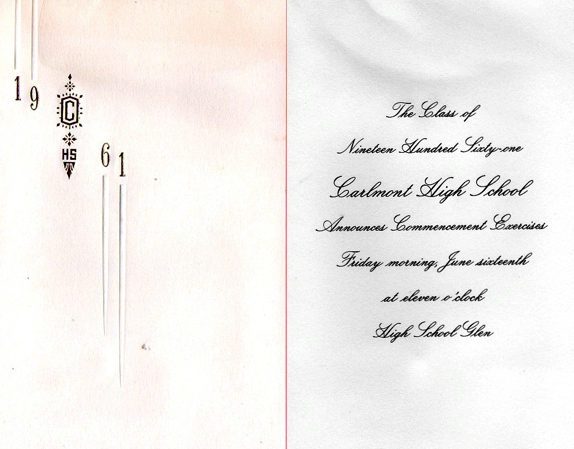 19
C
HS
61
The Class of
Nineteen Hundred Sixty-one
Carlmont High School
Announces Commencement Exercises
Friday morning, June sixteenth
at eleven o'clock
High School Glen